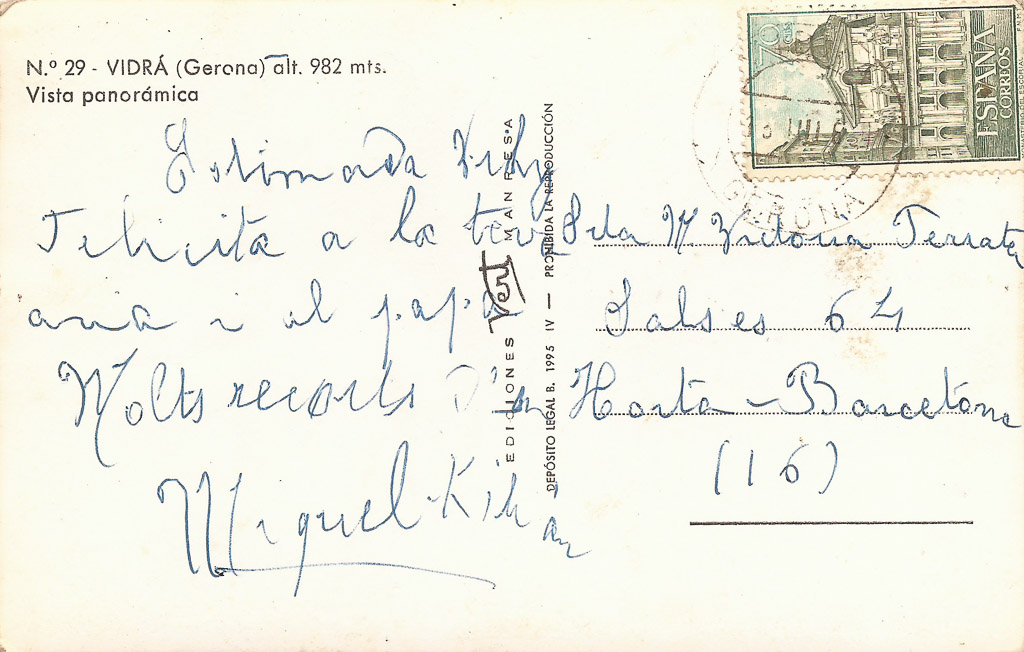 N.º 29 - VIDRÁ (Gerona) alt. 982 mts.
Vista panorámica
Estimada Viky
Felicita a la teva
avia i al papa
Molts records d'en
Miquel Kilian
EDICIONES Vert MANRESA
DEPÓSITO LEGAL B. 1995 IV — PROHIBIDA LA REPRODUCCIÓN
70 CTS
ESPAÑA
CORREOS
GERONA
Srta M. Victoria Terrate
Salses 64
Horta - Barcelona
(16)